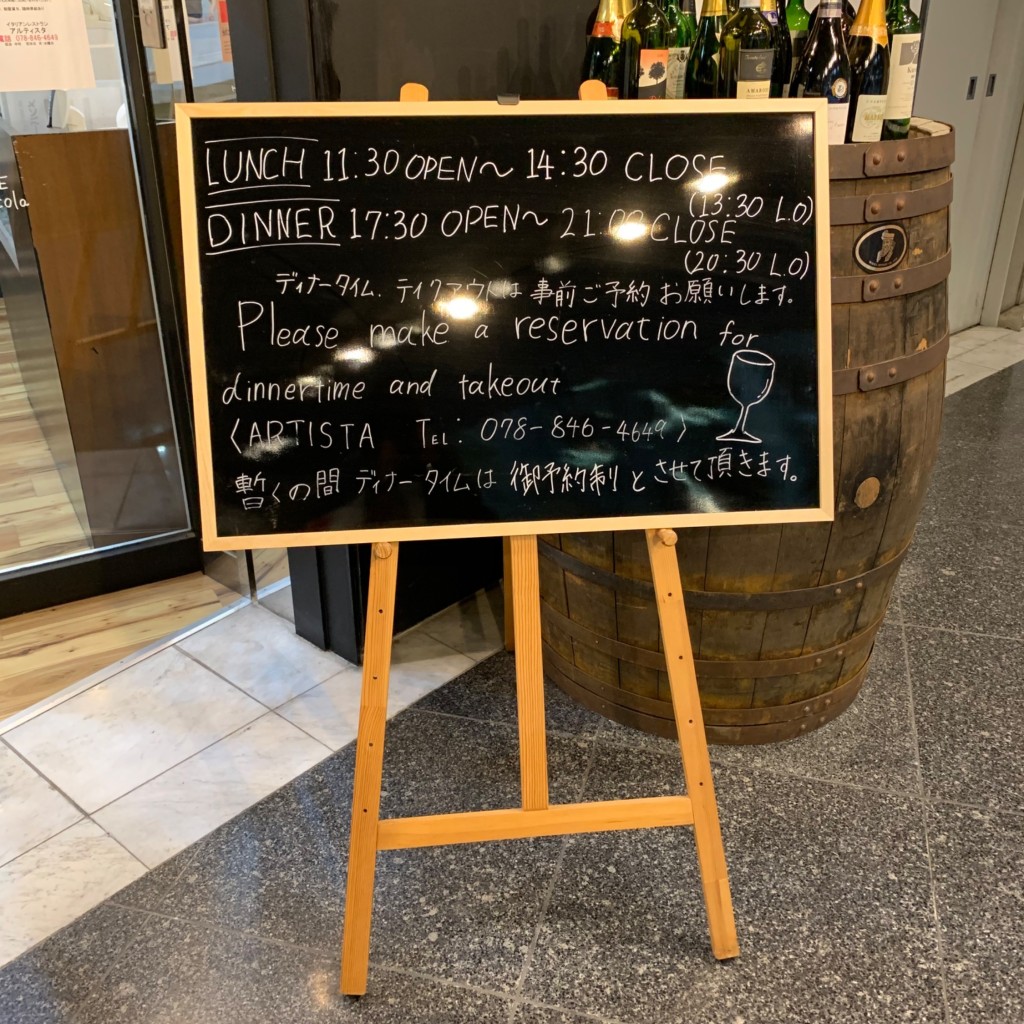 イタリアンレストラン
アルティスタ
078-846-4649
LUNCH 11:30 OPEN～ 14:30 CLOSE
(13:30 L.O)
DINNER 17:30 OPEN～ 21:00 CLOSE
(20:30 L.O)
ディナータイム、テイクアウトは事前ご予約お願いします。
Please make a reservation for
dinnertime and takeout
〈ARTISTA TEL: 078-846-4649〉
暫くの間 ディナータイムは 御予約制 とさせて頂きます。